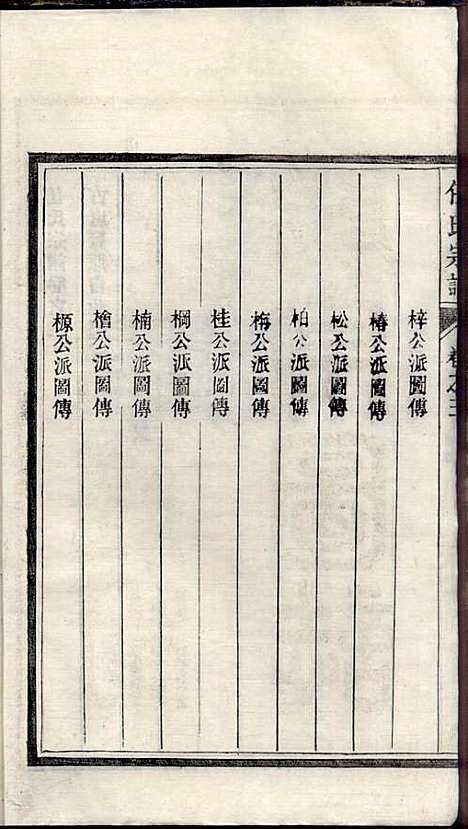 氏宗譜 卷之三
梓公派圖傳
椿公派圖傳
松公派圖傳
柏公派圖傳
梅公派圖傳
桂公派圖傳
棡公派圖傳
楠公派圖傳
檜公派圖傳
榞公派圖傳